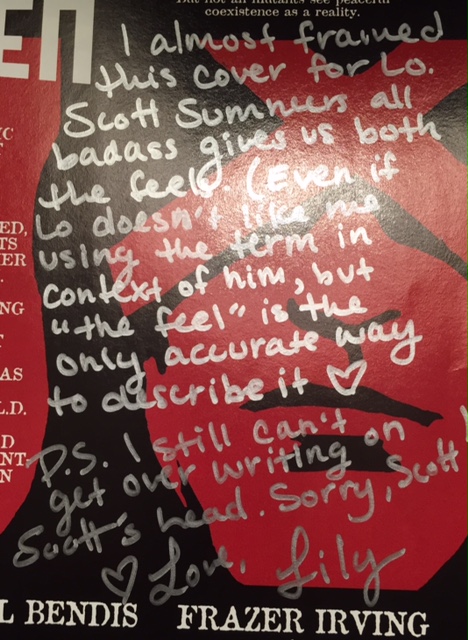 But not all mutants see peaceful
coexistence as a reality.
EN
I almost framed
this cover for Lo.
Scott Summers all
badass gives us both
the feels. (Even if
Lo doesn't like me
using the term in
context of him, but
"the feel" is the
only accurate way
to describe it ♡
P.S. I still can't
get over writing on
Scott's head. Sorry, Scott!
♡ Love, Lily
IC
ED,
TS
ER
NG
AS
L.D.
D
NT,
N
L BENDIS FRAZER IRVING